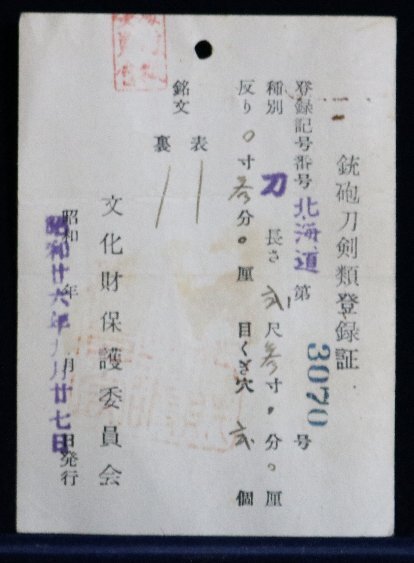 銃砲刀剣類登録証
登録記号番号 北海道 第 3070 号
種別 刀 長さ 弐尺参寸 分 厘
反り 〇寸参分〇厘 目くぎ穴 弐 個
銘文 表
裏
文化財保護委員会
昭和 年 月 日発行
昭和廿六年 月廿七日